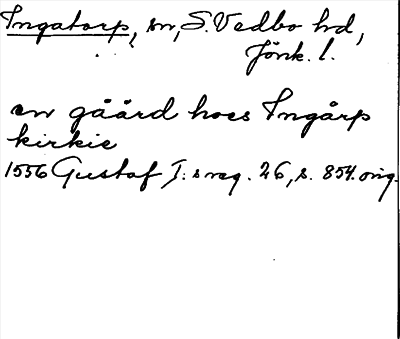 Ingatorp, sn, S. Vedbo hd,
Jönk. l.
en gåård hoes Ingårp
kirkie
1556 Gustaf I:s reg. 26, s. 854. orig.